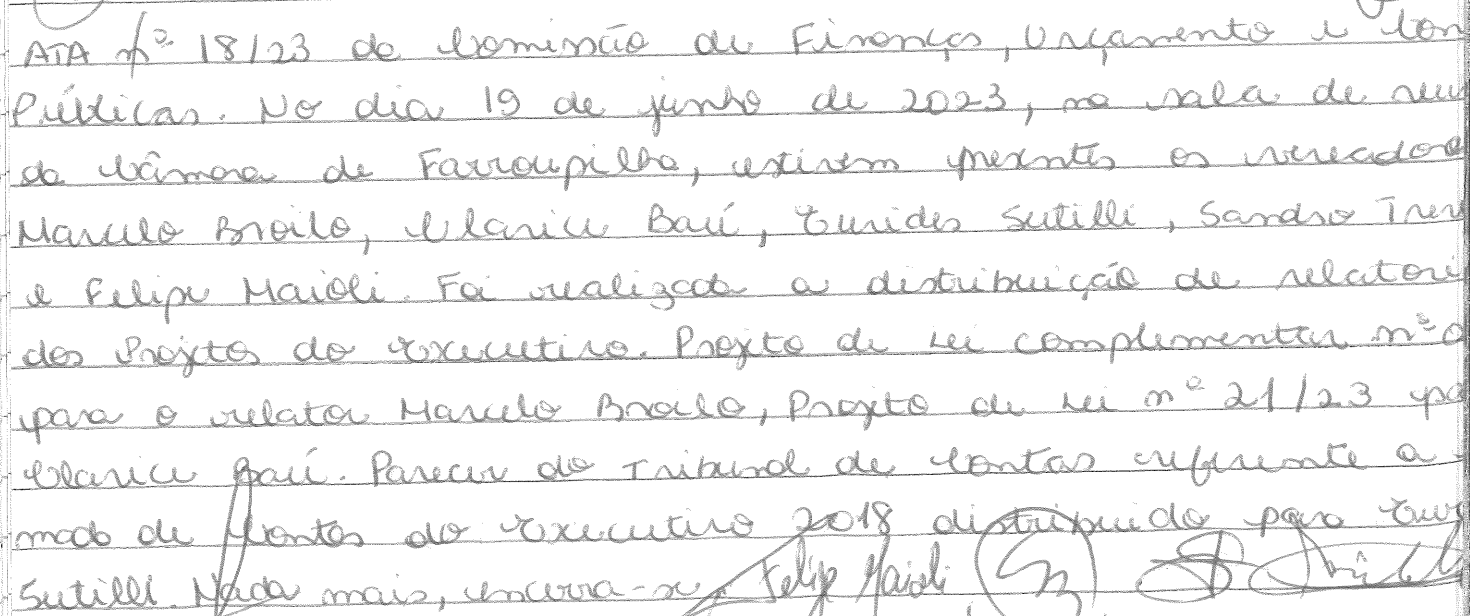 ATA nº 18/23 da Comissão de Finanças, Orçamento e Con
Públicas. No dia 19 de junho de 2023, na sala de reu
da Câmara de Farroupilha, estiveram presentes os vereadore
Marcelo Broilo, Clarice Baú, Eurides Sutilli, Sandro Trev
e Felipe Maioli. Foi realizada a distribuição de relatori
dos Projetos do Executivo. Projeto de Lei complementar nº 0
para o relator Marcelo Broilo, Projeto de Lei nº 21/23 pa
Clarice Baú. Parecer do Tribunal de Contas referente a
mada de Contas do Executivo 2018 distribuído para Eur
Sutilli. Nada mais, encerra-se Felipe Maioli